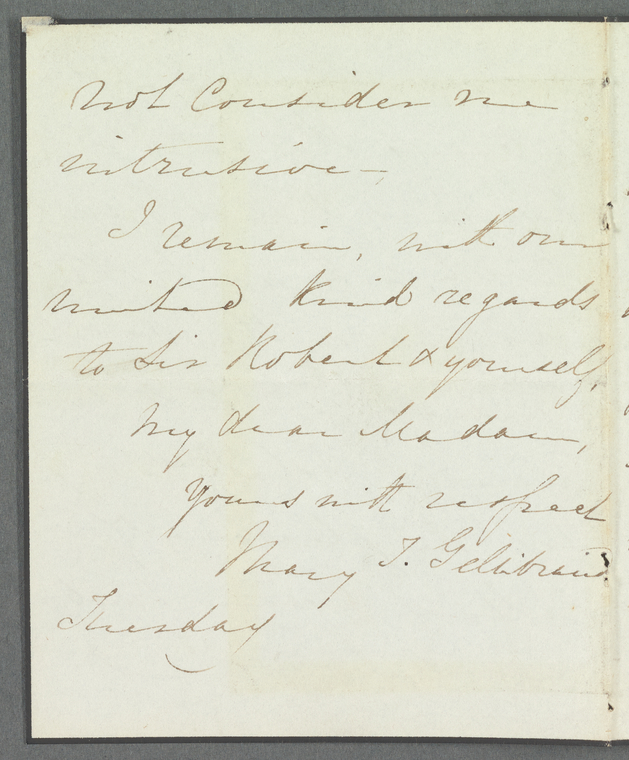 not Consider me
intrusive—
I remain, with our
united kind regards
to Sir Robert & yourself,
My dear Madam,
yours with respect
Mary T. Gellibrand.
Tuesday